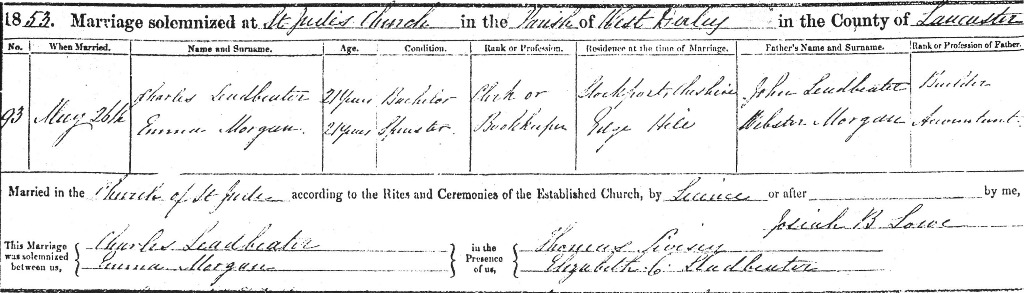 1853. Marriage solemnized at St Jude's Church in the Parish of West Derby in the County of Lancaster
No. When Married. Name and Surname. Age. Condition. Rank or Profession. Residence at the time of Marriage. Father's Name and Surname. Rank or Profession of Father.
Charles Leadbeater 21 years Bachelor Clerk or Stockport, Cheshire John Leadbeater Builder
93 May 26th
Emma Morgan. 21 years Spinster. Bookkeeper Edge Hill Webster Morgan Accountant
Married in the Church of St Jude according to the Rites and Ceremonies of the Established Church, by Licence or after by me,
Josiah B Lowe
This Marriage was solemnized between us, { Charles Leadbeater } in the Presence of us, { Thomas Livisey
Emma Morgan Elizabeth C. Leadbeater